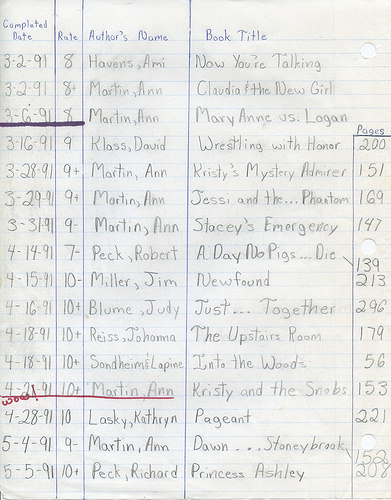 Completed
Date Rate Author's Name Book Title
3-2-91 8 Havens, Ami Now You're Talking
3-2-91 8+ Martin, Ann Claudia & the New Girl
3-6-91 8 Martin, Ann Mary Anne vs. Logan
Pages
3-16-91 9 Klass, David Wrestling with Honor 200
3-28-91 9+ Martin, Ann Kristy's Mystery Admirer 151
3-29-91 9+ Martin, Ann Jessi and the... Phantom 169
3-31-91 9- Martin, Ann Stacey's Emergency 147
4-14-91 7- Peck, Robert A Day No Pigs... Die 139
4-15-91 10- Miller, Jim Newfound 213
4-16-91 10+ Blume, Judy Just... Together 296
4-18-91 10+ Reiss, Johanna The Upstairs Room 179
4-18-91 10+ Sondheim & Lapine Into the Woods 56
4-21-91 10+ Martin, Ann Kristy and the Snobs 153
wow!
4-28-91 10 Lasky, Kathryn Pageant 221
5-4-91 9- Martin, Ann Dawn... Stoneybrook 152
5-5-91 10+ Peck, Richard Princess Ashley 208